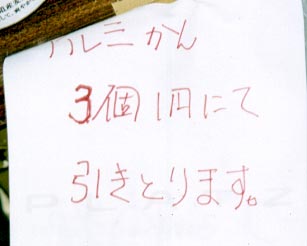 アルミかん
3個1円にて
引きとります。